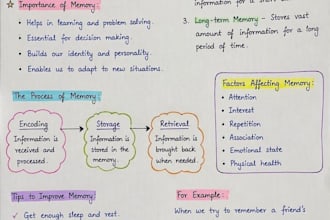 ☆ Importance of Memory:
• Helps in learning and problem solving.
• Essential for decision making.
• Builds our identity and personality.
• Enables us to adapt to new situations.
information for a short
3. Long-term Memory - Stores vast
amount of information for a long
period of time.
The Process of Memory:
Encoding
Information is
received and
processed.
Storage
Information is
stored in the
memory.
Retrieval
Information is
brought back
when needed.
Factors Affecting Memory:
• Attention
• Interest
• Repetition
• Association
• Emotional state
• Physical health
Tips to Improve Memory:
✓ Get enough sleep and rest.
For Example:
When we try to remember a friend's